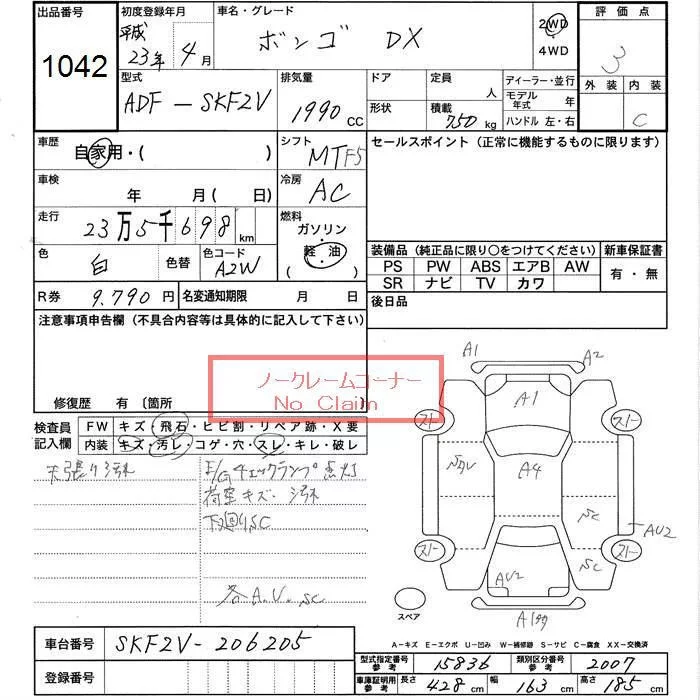 出品番号
1042
初度登録年月
平成
23年 4月
車名・グレード
ボンゴ DX
2WD
4WD
評価点
3
外装 内装
C
型式
ADF-SKF2V
排気量
1990 CC
ドア
形状
定員
人
積載
750 kg
ディーラー・並行
モデル年式 年
ハンドル 左・右
車歴
自家用・( )
シフト
MTF5
セールスポイント (正常に機能するものに限ります)
車検
年 月( 日)
冷房
AC
走行
23万5千698 km
燃料
ガソリン
軽・油
( )
色
白
色替
色コード
A2W
装備品 (純正品に限り○をつけてください)
新車保証書
PS PW ABS エアB AW
SR ナビ TV カワ
有・無
R券 9.790 円
名変通知期限 月 日
後日品
注意事項申告欄 (不具合内容等は具体的に記入して下さい)
ノークレームコーナー
No Claim
修復歴 有 〔箇所 〕
検査員
記入欄
FW キズ・飛石・ヒビ割・リペア跡・X要
内装 キズ・汚レ・コゲ・穴・スレ・キレ・破レ
天張り汚れ
E/Gチェックランプ点灯
荷室キズ・汚れ
下廻りSC
各A.V.SC
A1 A2
A1
スト スト
A4
SC
AU2
SC
AU2
スト スト
スペア
車台番号 SKF2V-206205
登録番号
A-キズ E-エクボ U-凹み W-補修跡 S-サビ C-腐食 XX-交換済
型式指定番号
参考
15836
類別区分番号
参考
2007
車庫証明用
参考
長さ 428 cm
幅 163 cm
高さ 185 cm